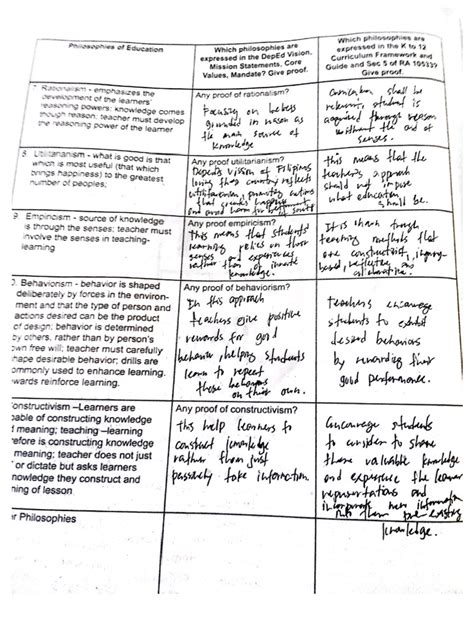 Philosophies of Education
Which philosophies are
expressed in the DepEd Vision,
Mission Statements, Core
Values, Mandate? Give proof.
Which philosophies are
expressed in the K to 12
Curriculum Framework and
Guide and Sec 5 of RA 10533?
Give proof.
7. Rationalism - emphasizes the
development of the learners'
reasoning powers; knowledge comes
though reason; teacher must develop
the reasoning power of the learner
Any proof of rationalism?
Focusing on
grounded in reason as
the main source of
knowledge
Curriculum shall be
relevant, student is
acquired through reason
without the aid of
senses.
8. Utilitarianism - what is good is that
which is most useful (that which
brings happiness) to the greatest
number of peoples;
Any proof utilitarianism?
DepEd's vision of Filipinos
loving their country reflects
utilitarianism, promoting actions
that
and avoid harm for
this means that the
teacher's approach
should not impose
what education
shall be.
9. Empiricism - source of knowledge
is through the senses; teacher must
involve the senses in teaching-
learning
Any proof empiricism?
This means that students'
learning relies on their
senses and experiences
rather than of innate
knowledge.
It is
teaching that
are constructivist, inquiry-
based, reflective and
collaborative.
0. Behaviorism - behavior is shaped
deliberately by forces in the environ-
ment and that the type of person and
actions desired can be the product
of design; behavior is determined
by others, rather than by person's
own free will; teacher must carefully
hape desirable behavior; drills are
ommonly used to enhance learning.
wards reinforce learning.
Any proof of behaviorism?
In this approach
teachers give positive
rewards for good
behavior, helping students
learn to repeat
these behaviors
on their own.
Teachers encourage
students to exhibit
desired behaviors
by rewarding their
good performance.
onstructivism –Learners are
able of constructing knowledge
d meaning; teaching –learning
efore is constructing knowledge
meaning; teacher does not just
' or dictate but asks learners
nowledge they construct and
ning of lesson
Any proof of constructivism?
this help learners to
construct knowledge
rather than just
passively take information.
Encourage students
to consider to share
there valuable knowledge
and experience the learner
representations and
incorporate new information
into them pre-existing
knowledge.
r Philosophies